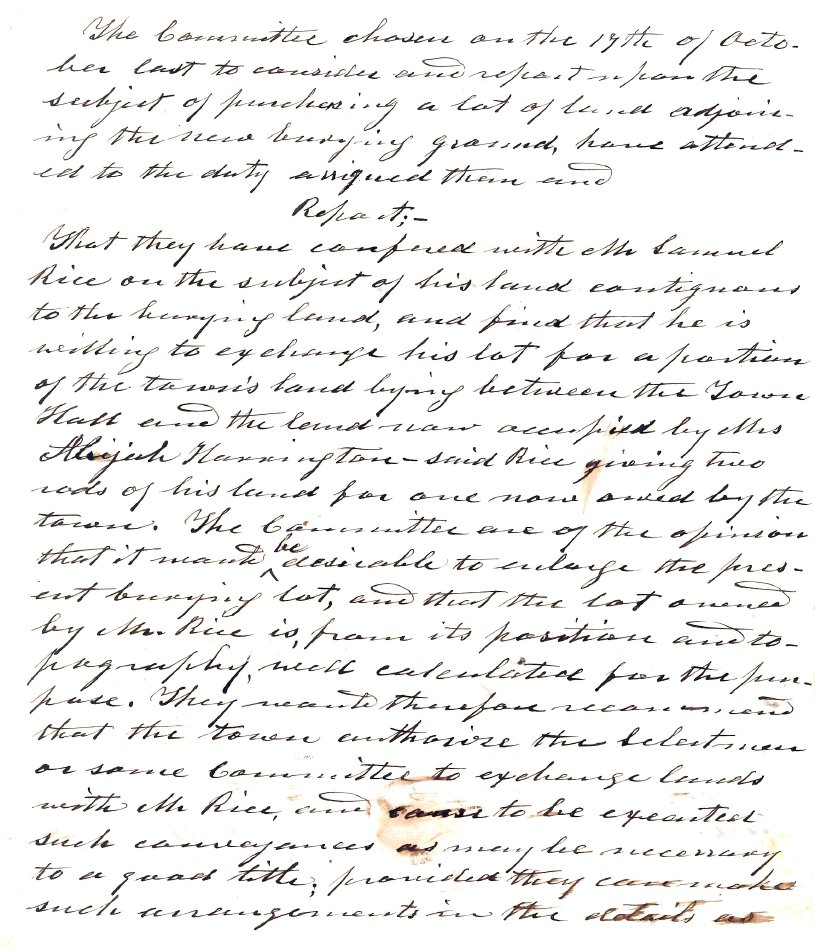 The Committee chosen on the 17th of Octo-
ber last to consider and report upon the
subject of purchasing a lot of land adjoin-
ing the new burying ground, have attend-
ed to the duty assigned them and
Report;-
That they have confered with Mr Samuel
Rice on the subject of his land contiguous
to the burying land, and find that he is
willing to exchange his lot for a portion
of the town's land lying between the Town
Hall and the land now occupied by Mrs
Abijah Harrington - said Rice giving two
rods of his land for one now owed by the
town. The Committee are of the opinion
that it would be desirable to enlarge the pres-
ent burying lot, and that the lot owned
by Mr. Rice is, from its position and to-
pography, well calculated for the pur-
pose. They would therefore recommend
that the town authorize the Selectmen
or some Committee to exchange lands
with Mr Rice, and cause to be executed
such conveyances as may be necessary
to a good title; provided they can make
such arrangements in the details as